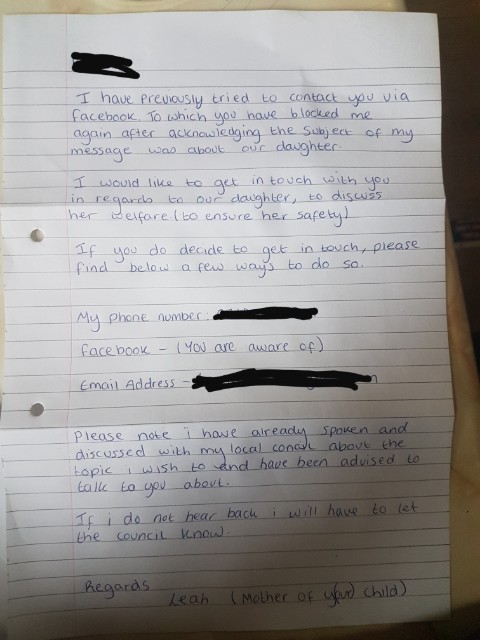 I have previously tried to contact you via
facebook. To which you have blocked me
again after acknowledging the subject of my
message was about our daughter.
I would like to get in touch with you
in regards to our daughter, to discuss
her welfare (to ensure her safety)
If you do decide to get in touch, please
find below a few ways to do so.
My phone number:
facebook - (You are aware of)
Email Address -
Please note i have already spoken and
discussed with my local about the
topic i wish to and have been advised to
talk to you about.
If i do not hear back i will have to let
the council know.
Regards
Leah (Mother of child)